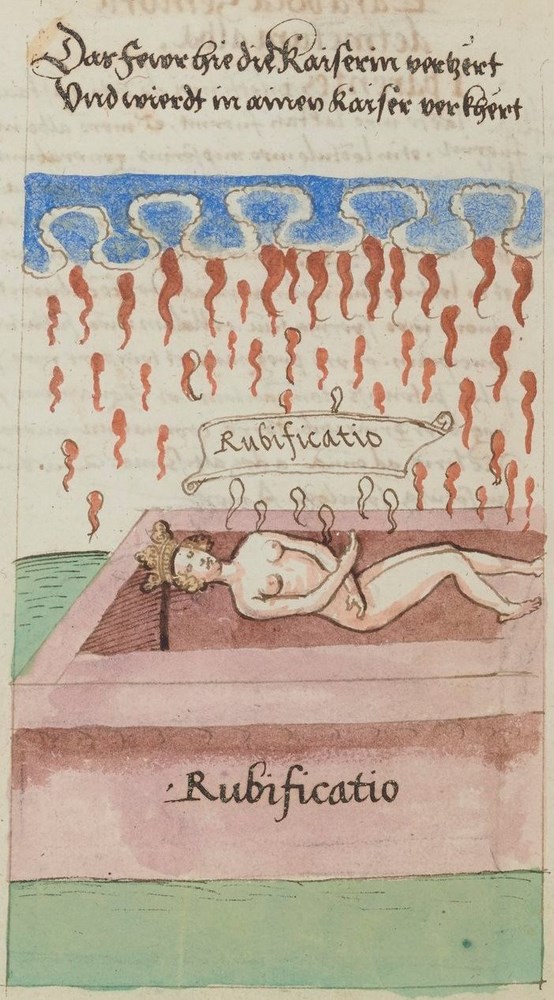 Das Fewr hie die Kaiserin verzert
Vnd wierdt in ainen Kaiser verkhert
Rubificatio
·Rubificatio